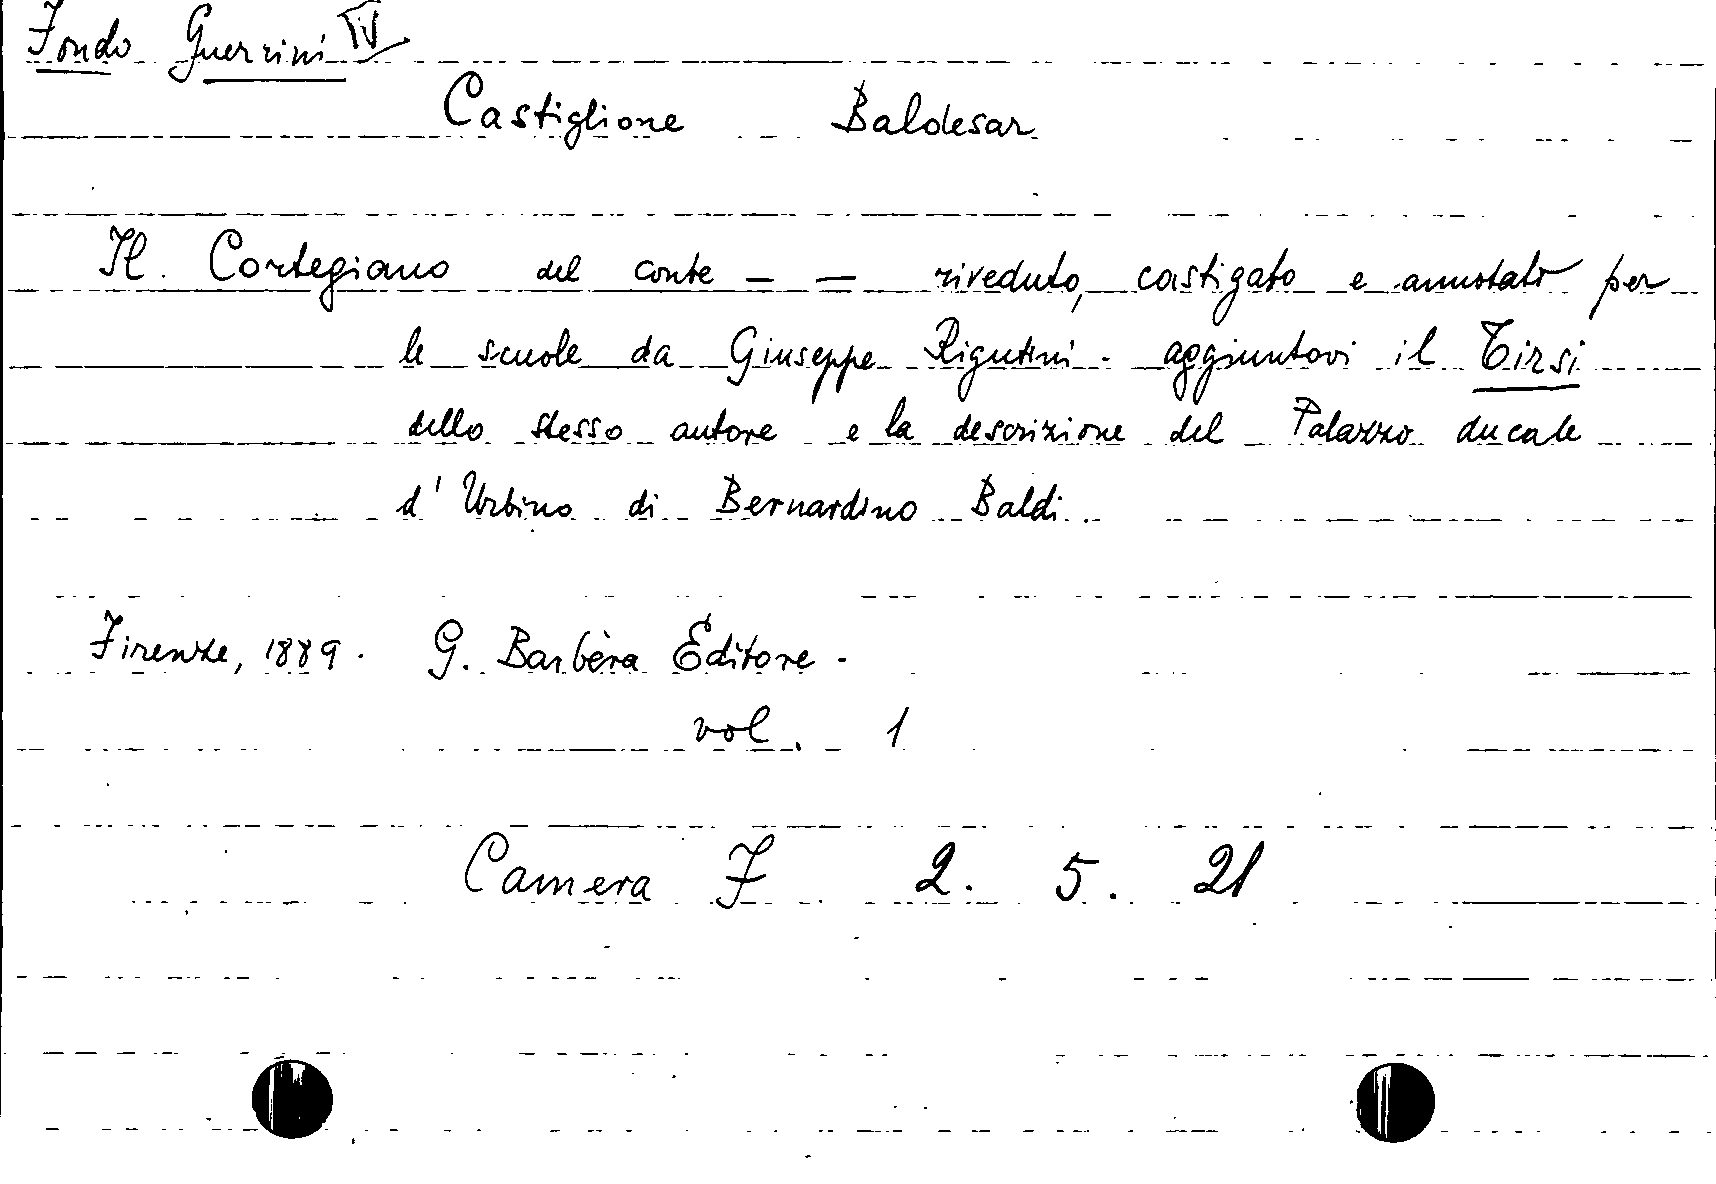 Fondo Guerrini IV
Castiglione Baldesar
Il Cortegiano del conte — — riveduto, castigato e annotato per
le scuole da Giuseppe Rigutini - aggiuntovi il Tirsi
dello stesso autore e la descrizione del Palazzo ducale
d'Urbino di Bernardino Baldi.
Firenze, 1889. G. Barbèra Editore -
vol. 1
Camera F 2. 5. 21